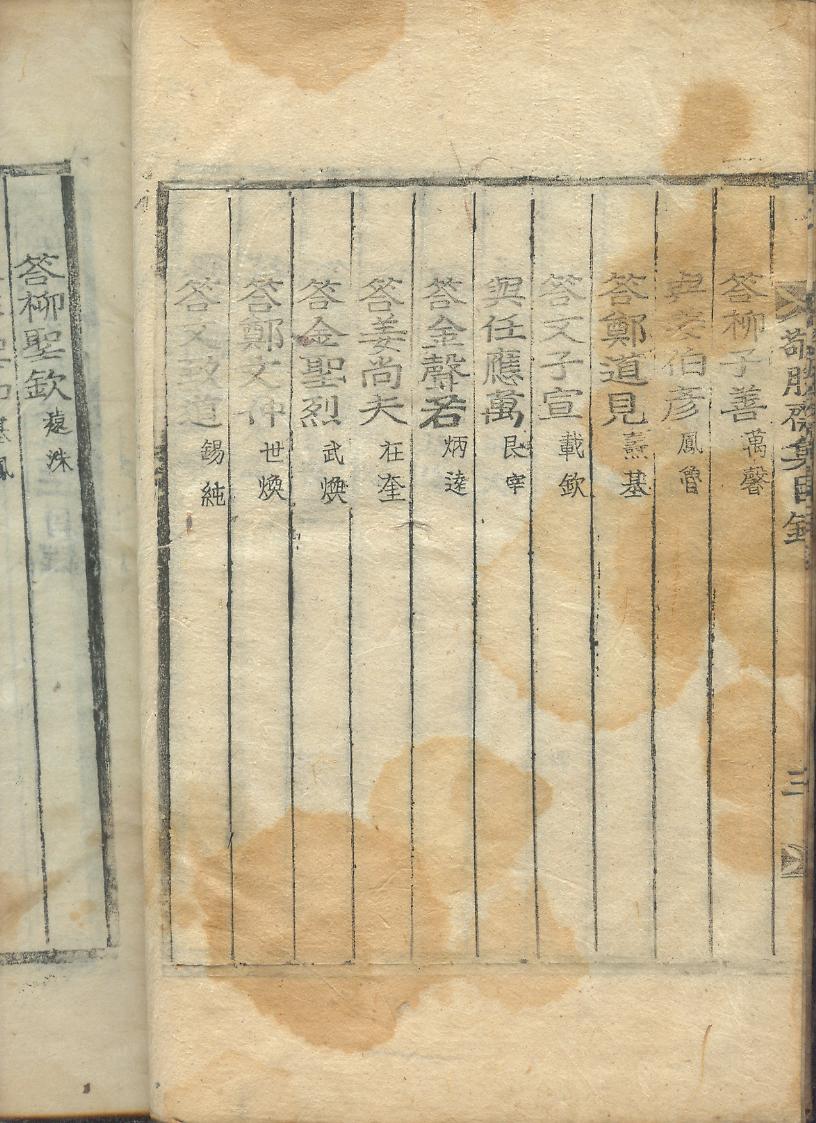 敬勝齋集目錄
三
答柳子善 萬馨
與姜伯彦 鳳魯
答鄭道見 熹基
答文子宣 載欽
與任應萬 艮宰
答金聲若 炳逵
答姜尚夫 在奎
答金聖烈 武煥
答鄭文仲 世煥
答文 錫純
答柳聖欽 遠洙